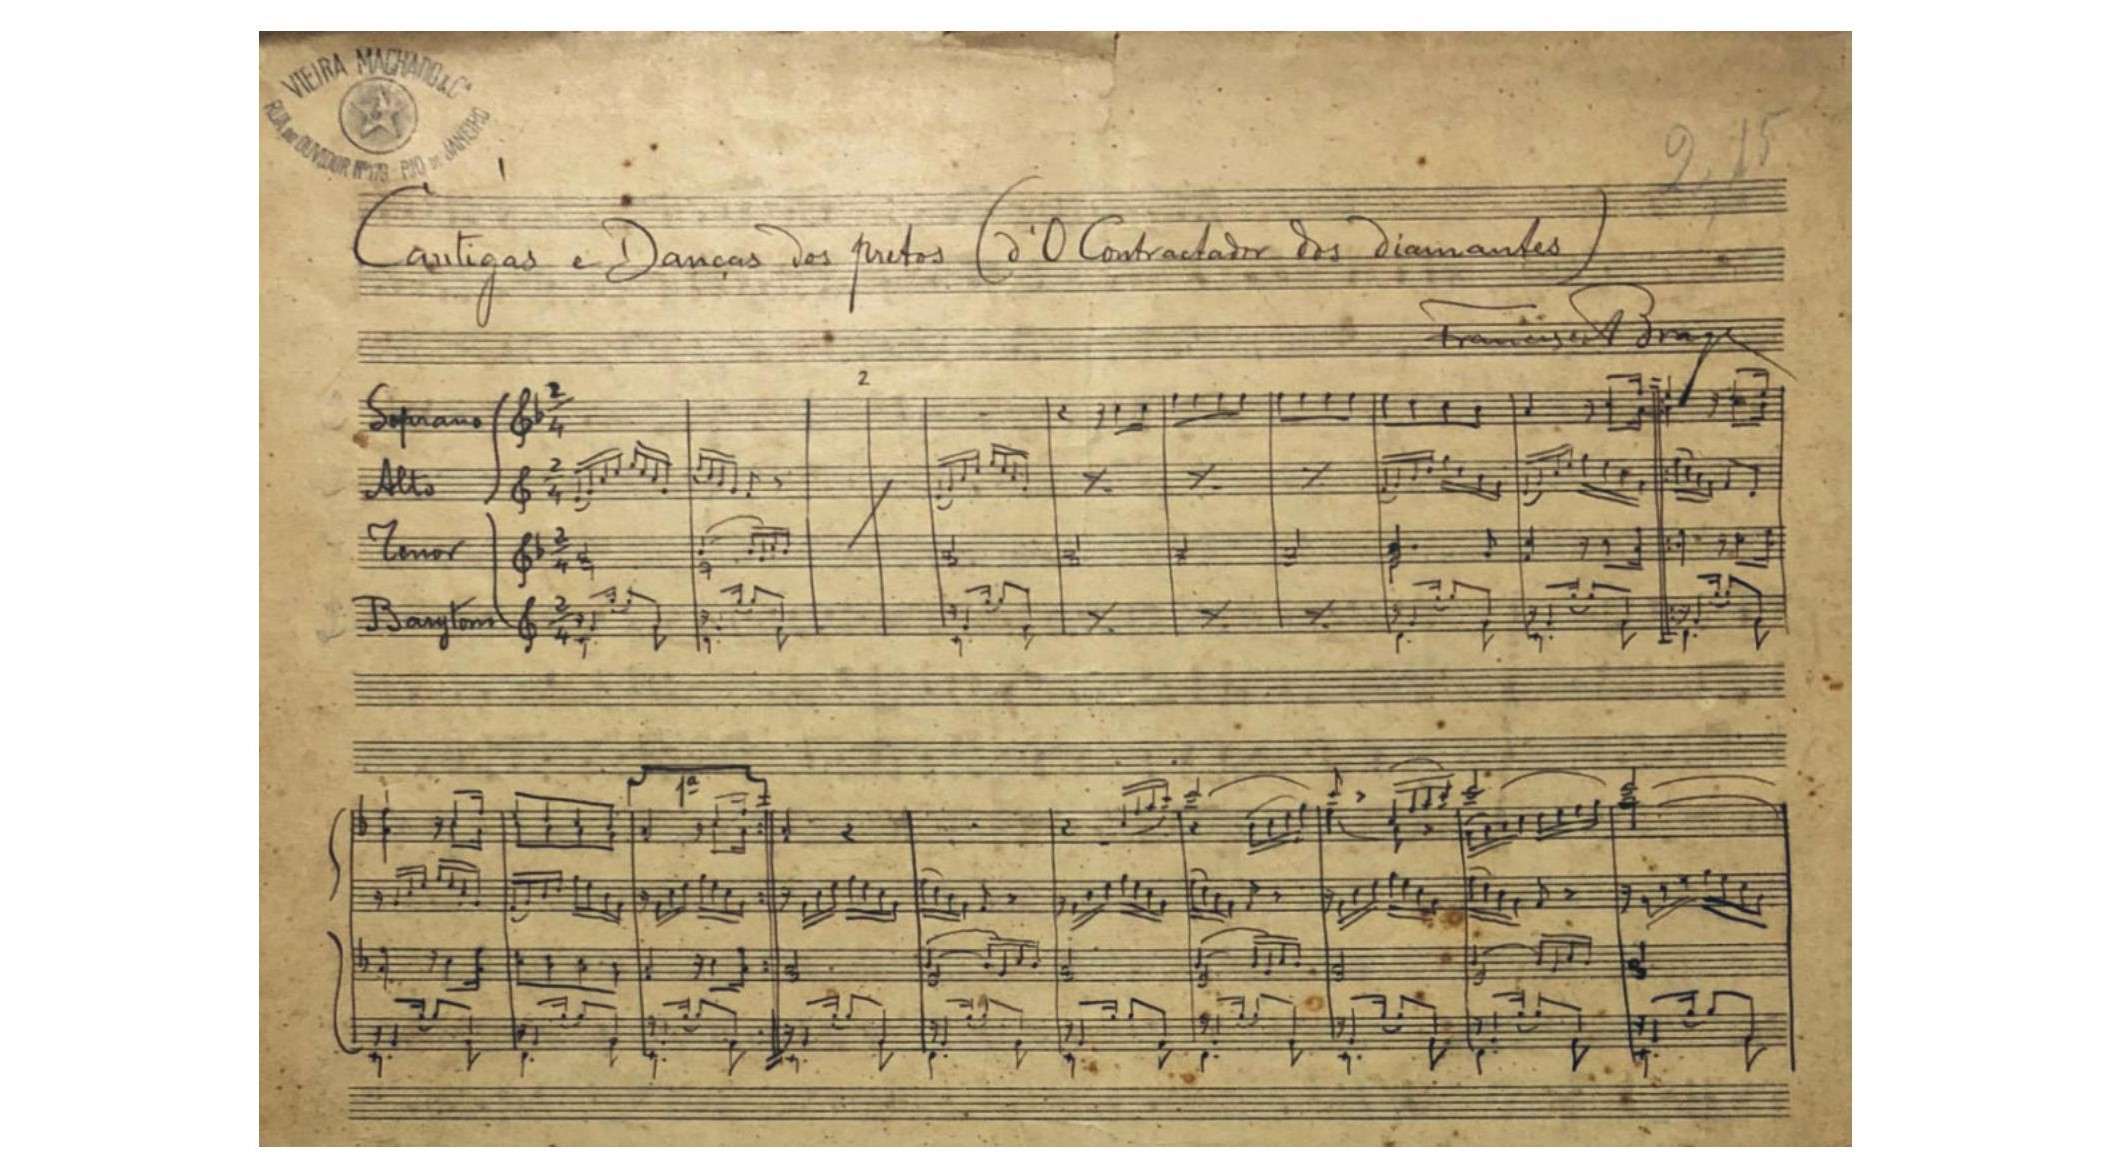 VIEIRA MACHADO & Cª
RUA DO OUVIDOR Nº 179 RIO DE JANEIRO
2,15
Cantigas e Danças dos pretos (d'O Contractador dos diamantes)
Francisco Braga
2
Soprano
Alto
Tenor
Barytono
1ª